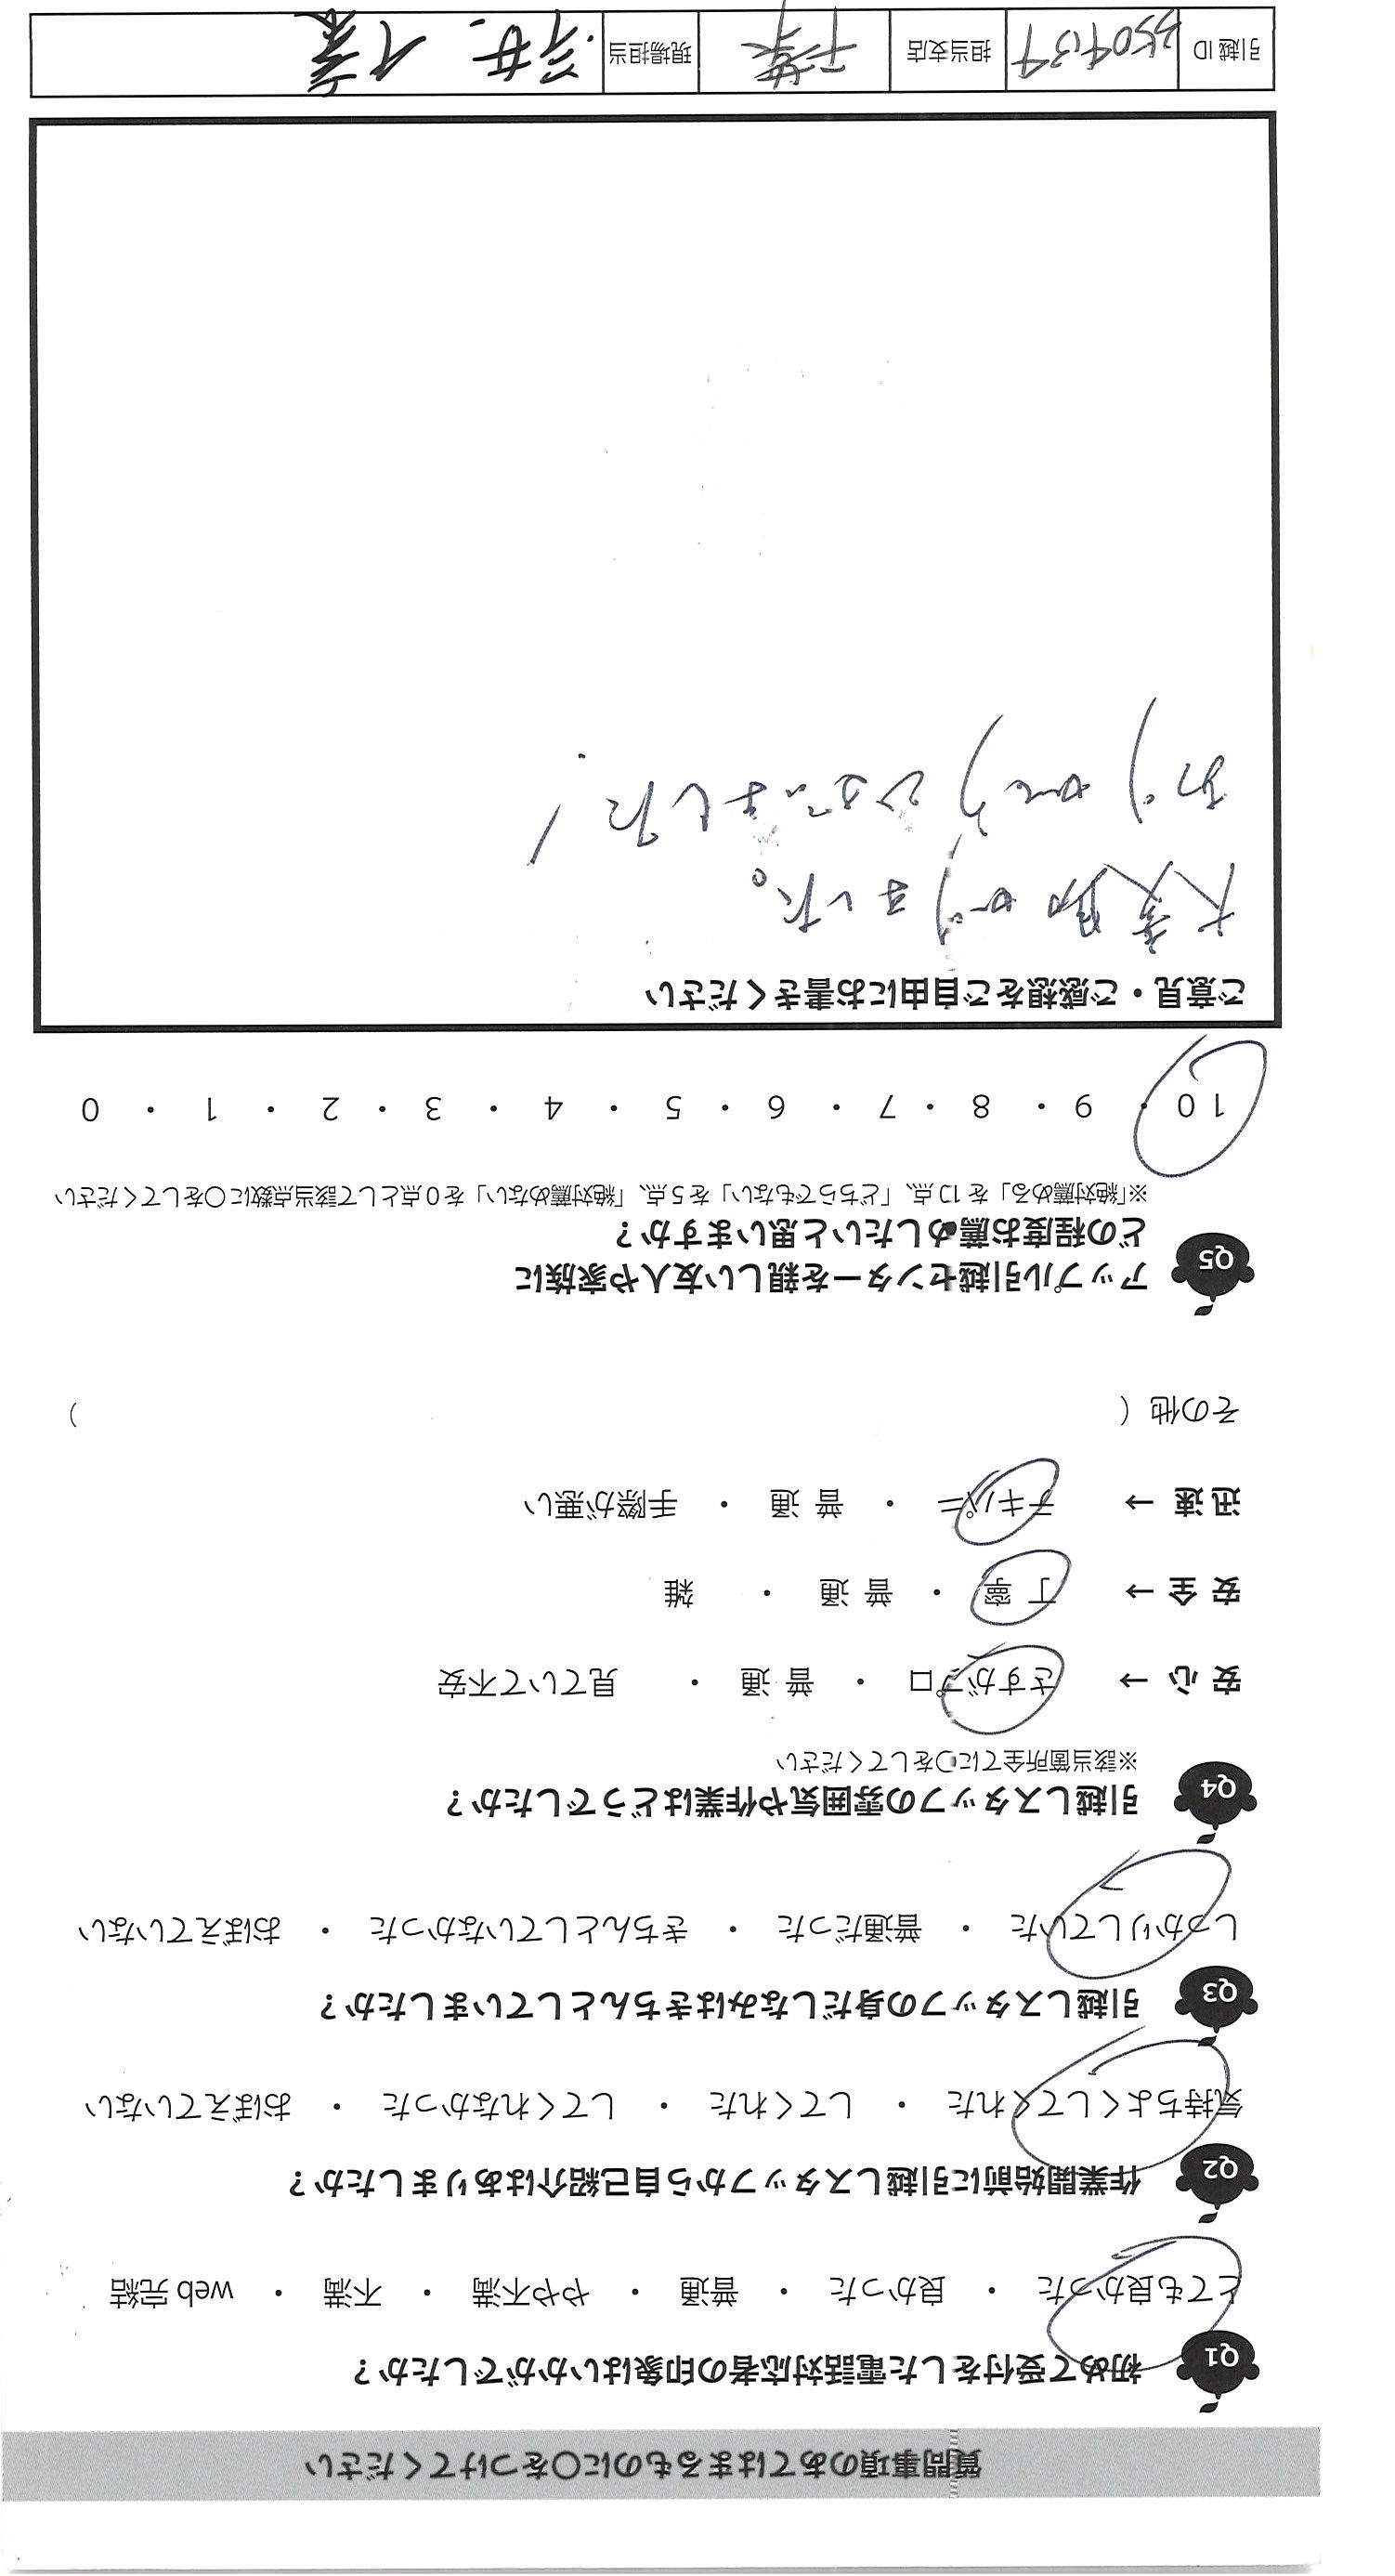 質問事項のあてはまるものに○をつけてください
Q1 初めて受付をした電話対応者の印象はいかがでしたか？
とても良かった ・ 良かった ・ 普通 ・ やや不満 ・ 不満 ・ web 完結
Q2 作業開始前に引越しスタッフから自己紹介はありましたか？
気持ちよくしてくれた ・ してくれた ・ してくれなかった ・ おぼえていない
Q3 引越しスタッフの身だしなみはきちんとしていましたか？
しっかりしていた ・ 普通だった ・ きちんとしていなかった ・ おぼえていない
Q4 引越しスタッフの雰囲気や作業はどうでしたか？
※該当箇所全てに○をしてください
安 心 → さすがプロ ・ 普 通 ・ 見ていて不安
安 全 → 丁 寧 ・ 普 通 ・ 雑
迅 速 → テキパキ ・ 普 通 ・ 手際が悪い
その他（ ）
Q5 アップル引越センターを親しい友人や家族に
どの程度お薦めしたいと思いますか？
※「絶対薦める」を 10 点、「どちらでもない」を 5 点、「絶対薦めない」を 0 点として該当点数に○をしてください
10 ・ 9 ・ 8 ・ 7 ・ 6 ・ 5 ・ 4 ・ 3 ・ 2 ・ 1 ・ 0
ご意見・ご感想をご自由にお書きください
大変助かりました。
ありがとうございました！
引越 ID 担当支店 千葉 現場担当